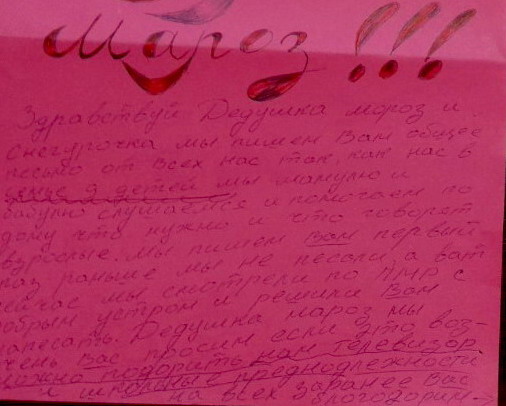 Мароз!!!
Здравствуй Дедушка мороз и
снегурочка мы пишем Вам общее
письмо от всех нас так как нас в
семье 9 детей мы мамулю и
бабулю слушаемся и помогаем по
дому что нужно и что говорят
взрослые. мы пишем Вам первый
раз раньше мы не писали а вот
сейчас мы смотрели по ПМР с
добрым утром и решили Вам
написать. Дедушка мороз мы
очень Вас просим если это воз-
можно подорить нам телевизор
и школьные
на всех заранее Вас
благодорим→